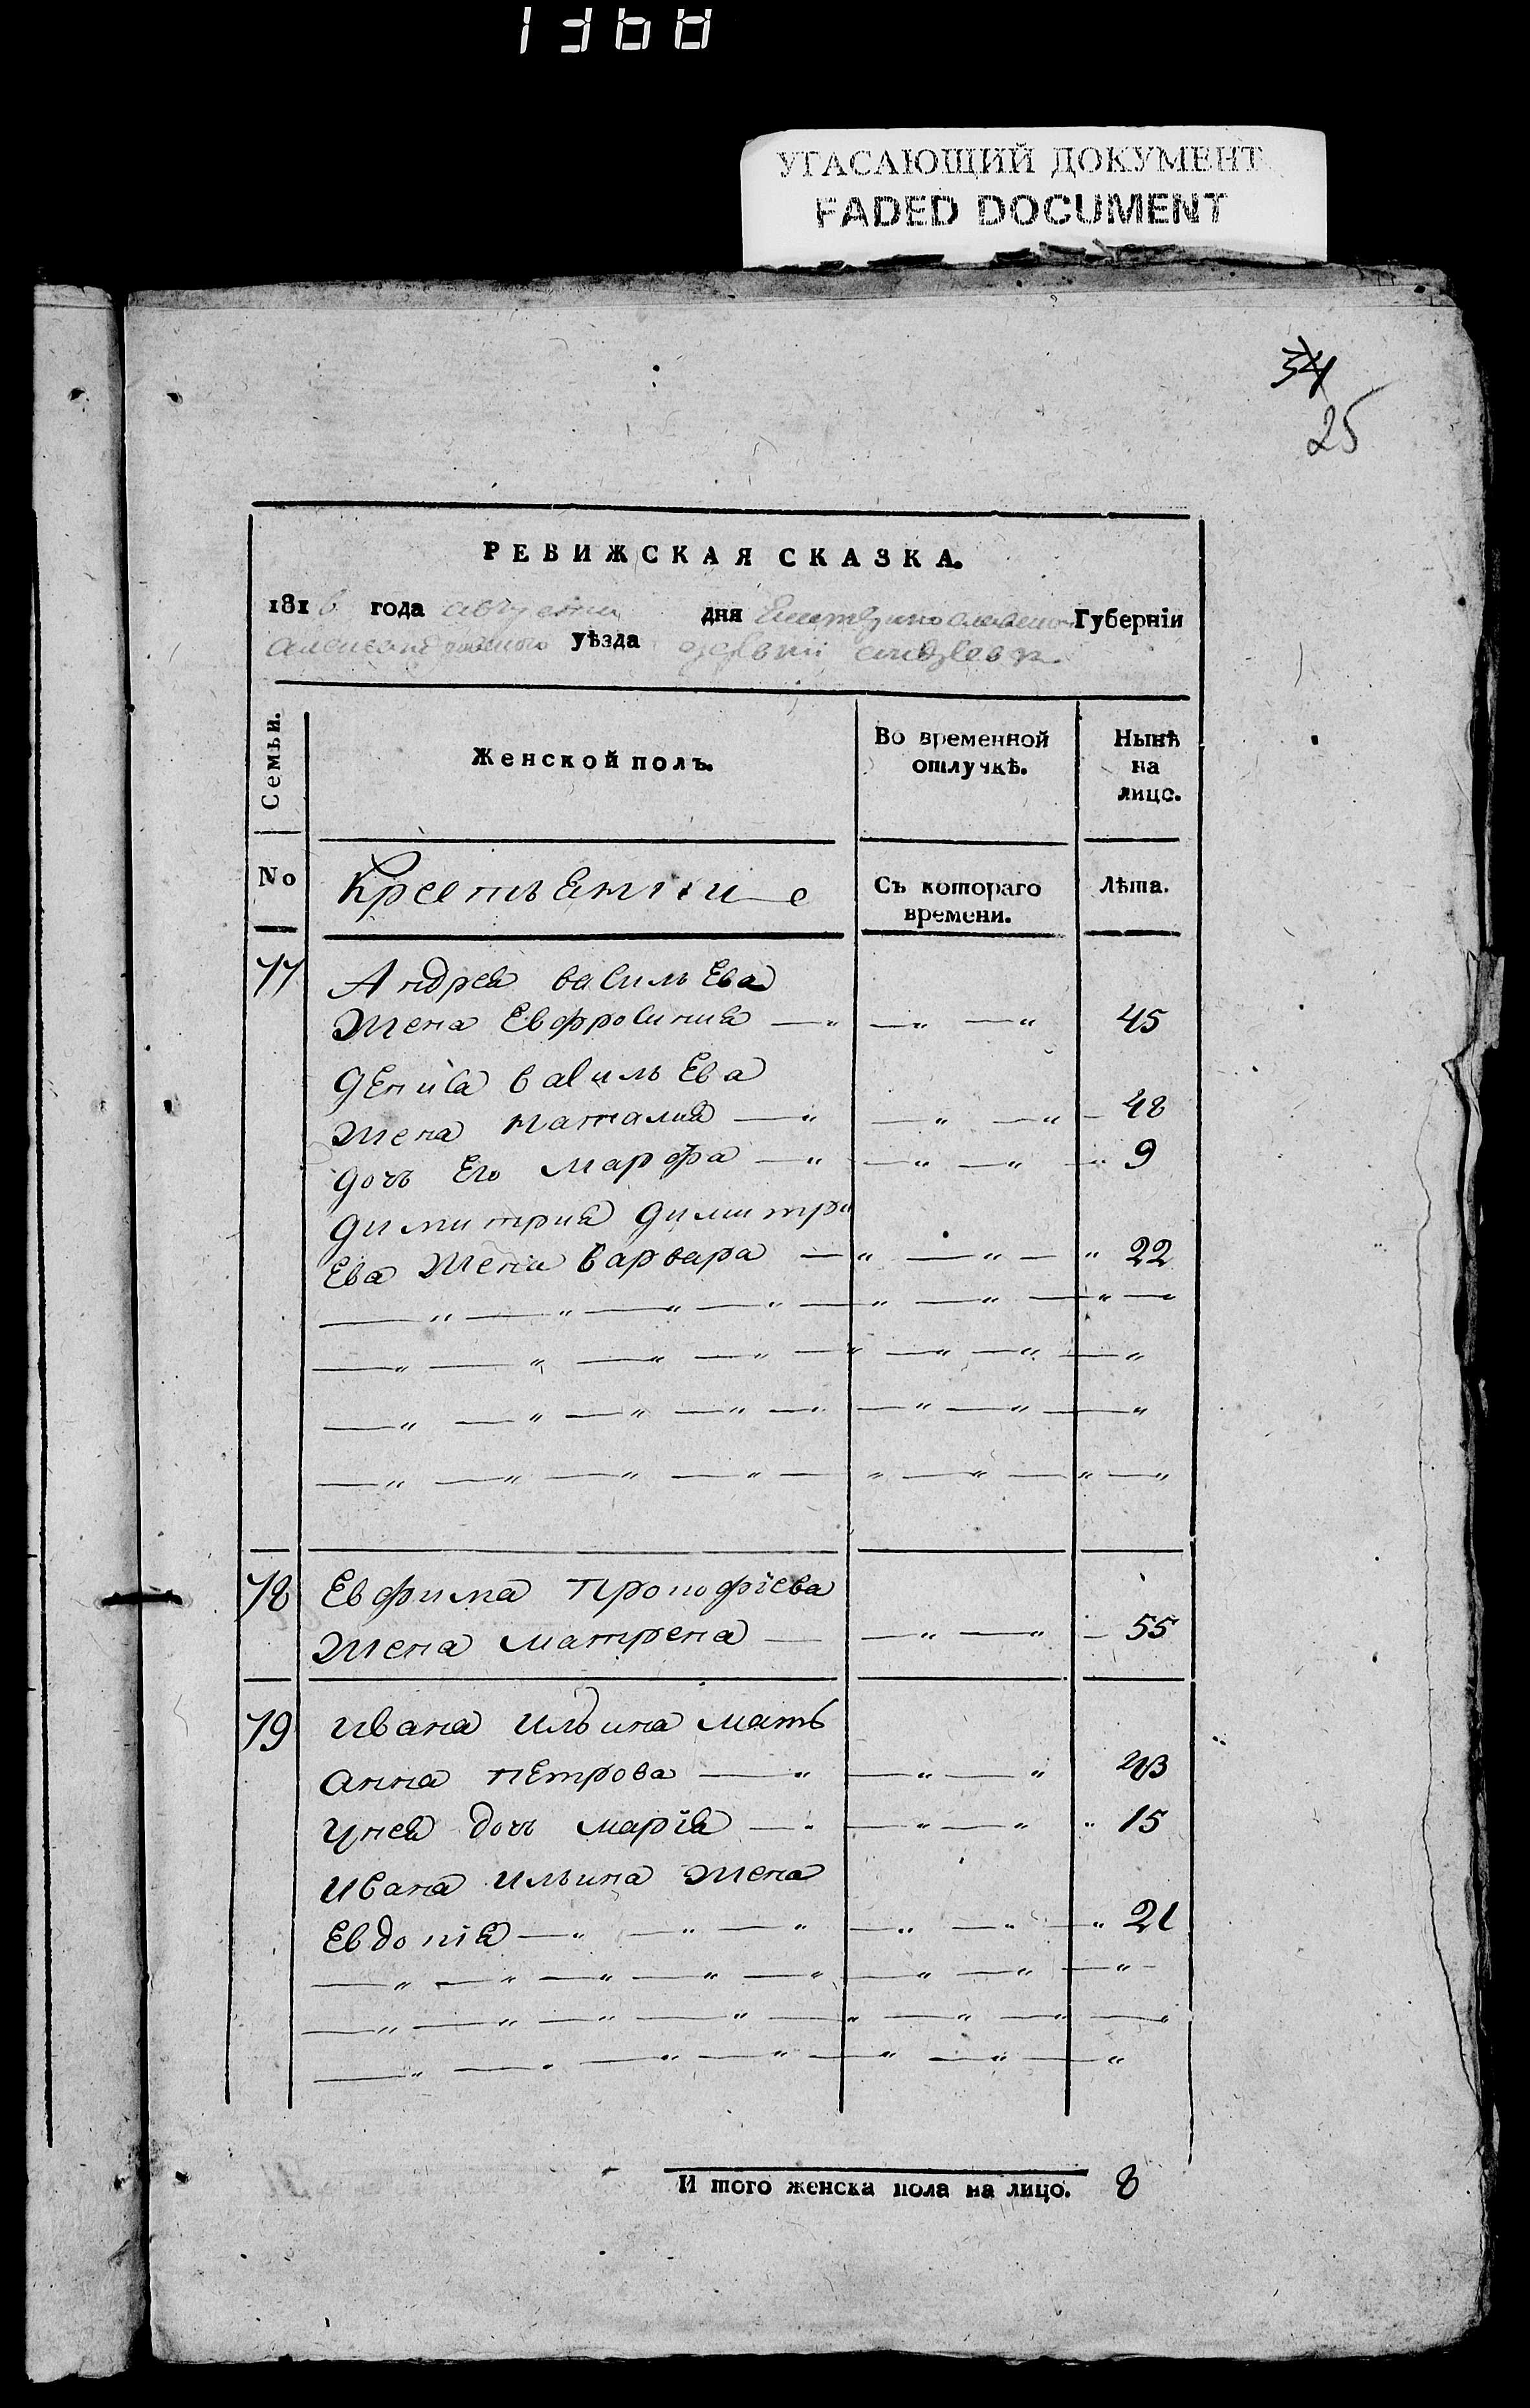 1368
УГАСАЮЩИЙ ДОКУМЕНТ
FADED DOCUMENT
34
25
РЕВИЖСКАЯ СКАЗКА.
181 6 года августа дня Екатеринославской Губерніи
александровского уѣзда деревни
Семьи. Женской полъ. Во временной отлучкѣ. Нынѣ на лицо.
No Крестьянкие Съ котораго времени. Лѣта.
77 Андрея васильЕва
Жена Евфросиния 45
ДЕниса васильЕва
жена наталия 48
дочь Его марфа 9
димитрия димитри
Ева жена варвара 22
78 Евфима прокофіева
жена матрена 55
79 ивана ильина мать
анна пЕтрова 43
унея дочь марія 15
ивана ильина жена
Евдокія 21
И того женска пола на лицо. 8